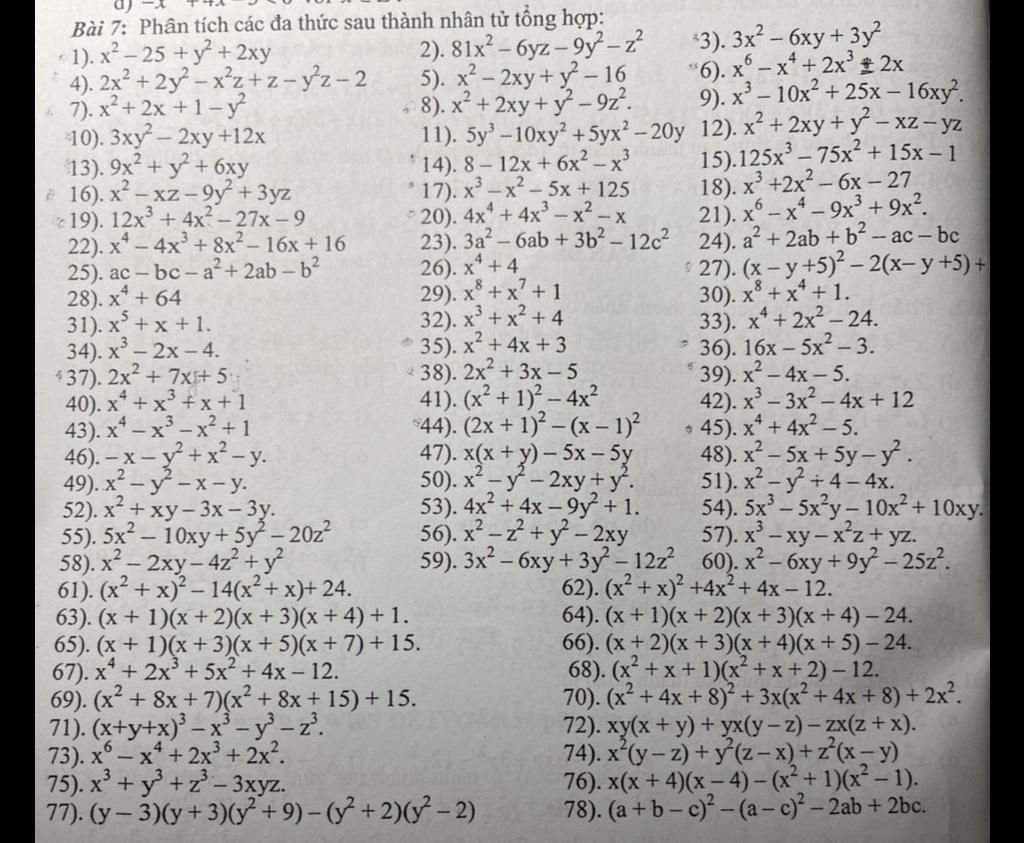 Bài 7: Phân tích các đa thức sau thành nhân tử tổng hợp:
1). x² – 25 + y² + 2xy 2). 81x² – 6yz – 9y² – z² 3). 3x² – 6xy + 3y²
4). 2x² + 2y² – x²z + z – y²z – 2 5). x² – 2xy + y² – 16 6). x⁶ – x⁴ + 2x³ ± 2x
7). x² + 2x + 1 – y² 8). x² + 2xy + y² – 9z². 9). x³ – 10x² + 25x – 16xy².
10). 3xy² – 2xy +12x 11). 5y³ –10xy² +5yx² –20y 12). x² + 2xy + y² – xz – yz
13). 9x² + y² + 6xy 14). 8 – 12x + 6x² – x³ 15).125x³ – 75x² + 15x – 1
16). x² – xz – 9y² + 3yz 17). x³ – x² – 5x + 125 18). x³ +2x² – 6x – 27
19). 12x³ + 4x² – 27x – 9 20). 4x⁴ + 4x³ – x² – x 21). x⁶ – x⁴ – 9x³ + 9x².
22). x⁴ – 4x³ + 8x² – 16x + 16 23). 3a² – 6ab + 3b² – 12c² 24). a² + 2ab + b² – ac – bc
25). ac – bc – a² + 2ab – b² 26). x⁴ + 4 27). (x – y +5)² – 2(x– y +5) +
28). x⁴ + 64 29). x⁸ + x⁷ + 1 30). x⁸ + x⁴ + 1.
31). x⁵ + x + 1. 32). x³ + x² + 4 33). x⁴ + 2x² – 24.
34). x³ – 2x – 4. 35). x² + 4x + 3 36). 16x – 5x² – 3.
37). 2x² + 7x + 5 38). 2x² + 3x – 5 39). x² – 4x – 5.
40). x⁴ + x³ + x + 1 41). (x² + 1)² – 4x² 42). x³ – 3x² – 4x + 12
43). x⁴ – x³ – x² + 1 44). (2x + 1)² – (x – 1)² 45). x⁴ + 4x² – 5.
46). – x – y² + x² – y. 47). x(x + y) – 5x – 5y 48). x² – 5x + 5y – y² .
49). x² – y² – x – y. 50). x² – y² – 2xy + y². 51). x² – y² + 4 – 4x.
52). x² + xy – 3x – 3y. 53). 4x² + 4x – 9y² + 1. 54). 5x³ – 5x²y – 10x² + 10xy.
55). 5x² – 10xy + 5y² – 20z² 56). x² – z² + y² – 2xy 57). x³ – xy – x²z + yz.
58). x² – 2xy – 4z² + y² 59). 3x² – 6xy + 3y² – 12z² 60). x² – 6xy + 9y² – 25z².
61). (x² + x)² – 14(x² + x)+ 24. 62). (x² + x)² +4x² + 4x – 12.
63). (x + 1)(x + 2)(x + 3)(x + 4) + 1. 64). (x + 1)(x + 2)(x + 3)(x + 4) – 24.
65). (x + 1)(x + 3)(x + 5)(x + 7) + 15. 66). (x + 2)(x + 3)(x + 4)(x + 5) – 24.
67). x⁴ + 2x³ + 5x² + 4x – 12. 68). (x² + x + 1)(x² + x + 2) – 12.
69). (x² + 8x + 7)(x² + 8x + 15) + 15. 70). (x² + 4x + 8)² + 3x(x² + 4x + 8) + 2x².
71). (x+y+x)³ – x³ – y³ – z³. 72). xy(x + y) + yx(y – z) – zx(z + x).
73). x⁶ – x⁴ + 2x³ + 2x². 74). x²(y – z) + y²(z – x) + z²(x – y)
75). x³ + y³ + z³ – 3xyz. 76). x(x + 4)(x – 4) – (x² + 1)(x² – 1).
77). (y – 3)(y + 3)(y² + 9) – (y² + 2)(y² – 2) 78). (a + b – c)² – (a – c)² – 2ab + 2bc.